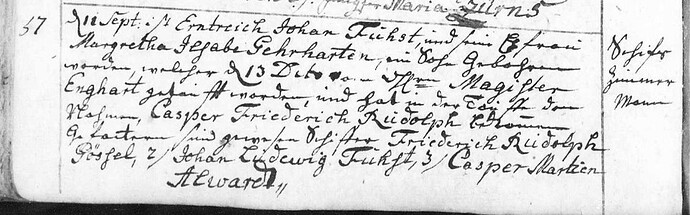 Maria Zurns
57 d 11 Sept. ist Erntreich Johan Fuhst, und seine Efrau Schiffs
Margretha Ilsabe Gehrharten, ein Sohn Gebohren Zimmer
worden, welcher d 13 Dito vom Hrn Magister Mann
Enghart getaufft worden, und hat in der Tauffe den
Nahmen, Casper Friederich Rudolph bekommen
Gevattern sind gewesen Schiffer Friederich Rudolph
Gössel, 2/ Johan Ludewig Fuhst, 3/ Casper Martien
Alwardt,,